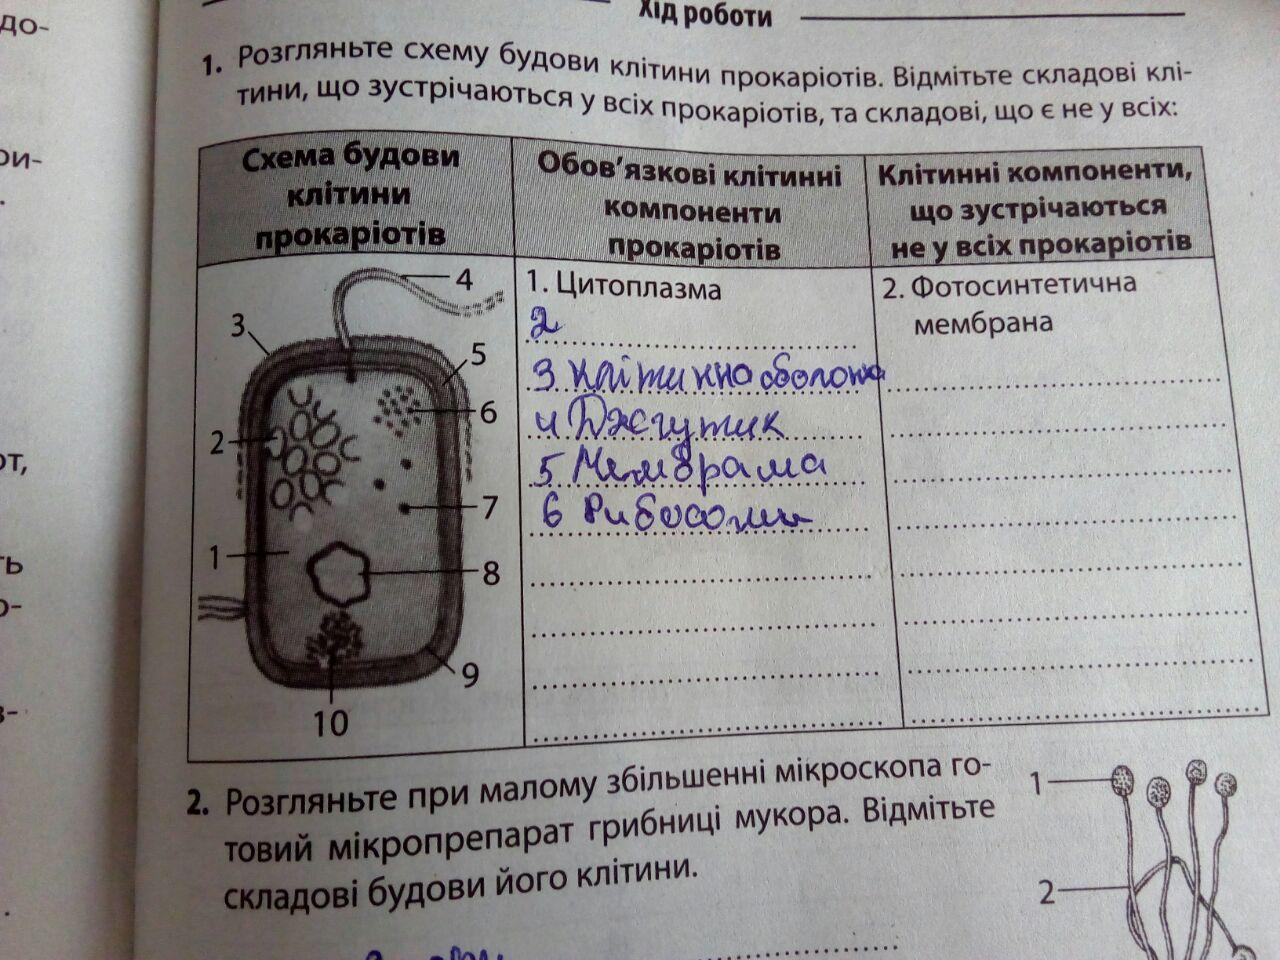 до-
ри-
.
от,
ть
о-
в-
.
Хід роботи
1. Розгляньте схему будови клітини прокаріотів. Відмітьте складові клі-
тини, що зустрічаються у всіх прокаріотів, та складові, що є не у всіх:
Схема будови
клітини
прокаріотів
Обов’язкові клітинні
компоненти
прокаріотів
Клітинні компоненти,
що зустрічаються
не у всіх прокаріотів
4
3
5
6
2
7
1
8
9
10
1. Цитоплазма
2
3 Клітинно оболонка
4 Джгутик
5 Мембрама
6 Рибосоми
2. Фотосинтетична
мембрана
2. Розгляньте при малому збільшенні мікроскопа го-
товий мікропрепарат грибниці мукора. Відмітьте
складові будови його клітини.
1
2